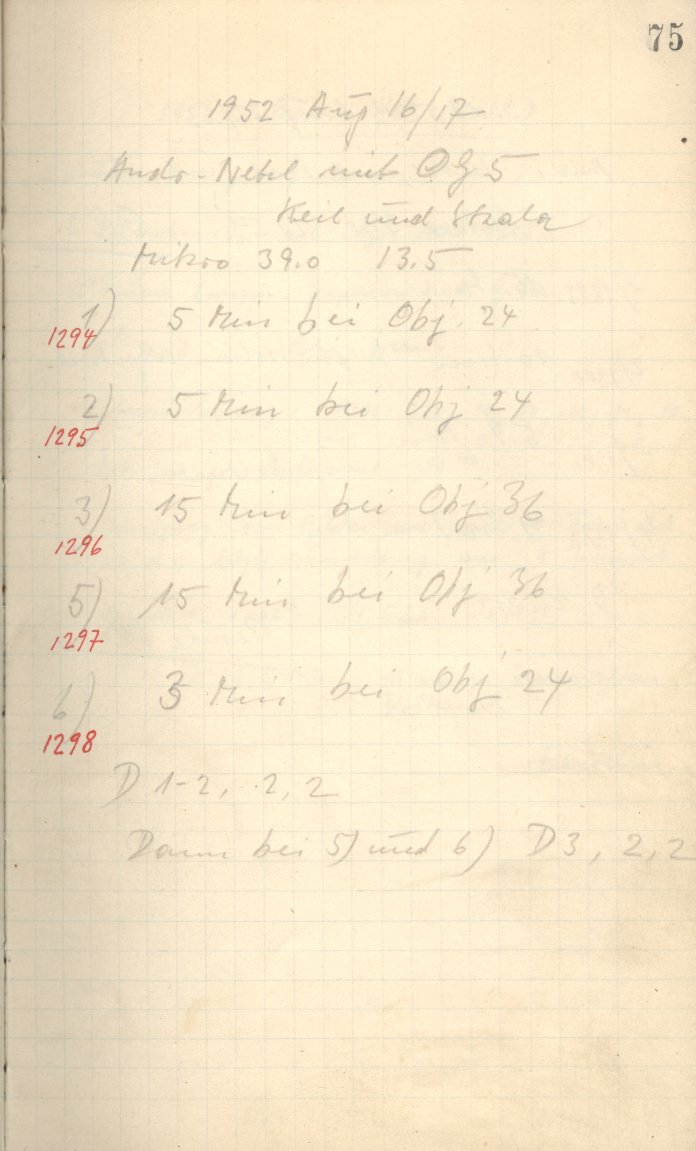 75
1952 Aug 16/17
Andr-Nebel mit OG5
Keil und Skala
Mikro 39.0 13.5
1) 5 Min bei Obj. 24
1294
2) 5 Min bei Obj 24
1295
3) 15 Min bei Obj 36
1296
5) 15 Min bei Obj 36
1297
6) 3 Min bei Obj 24
1298
D 1-2, 2, 2
Dann bei 5) und 6) D3, 2, 2